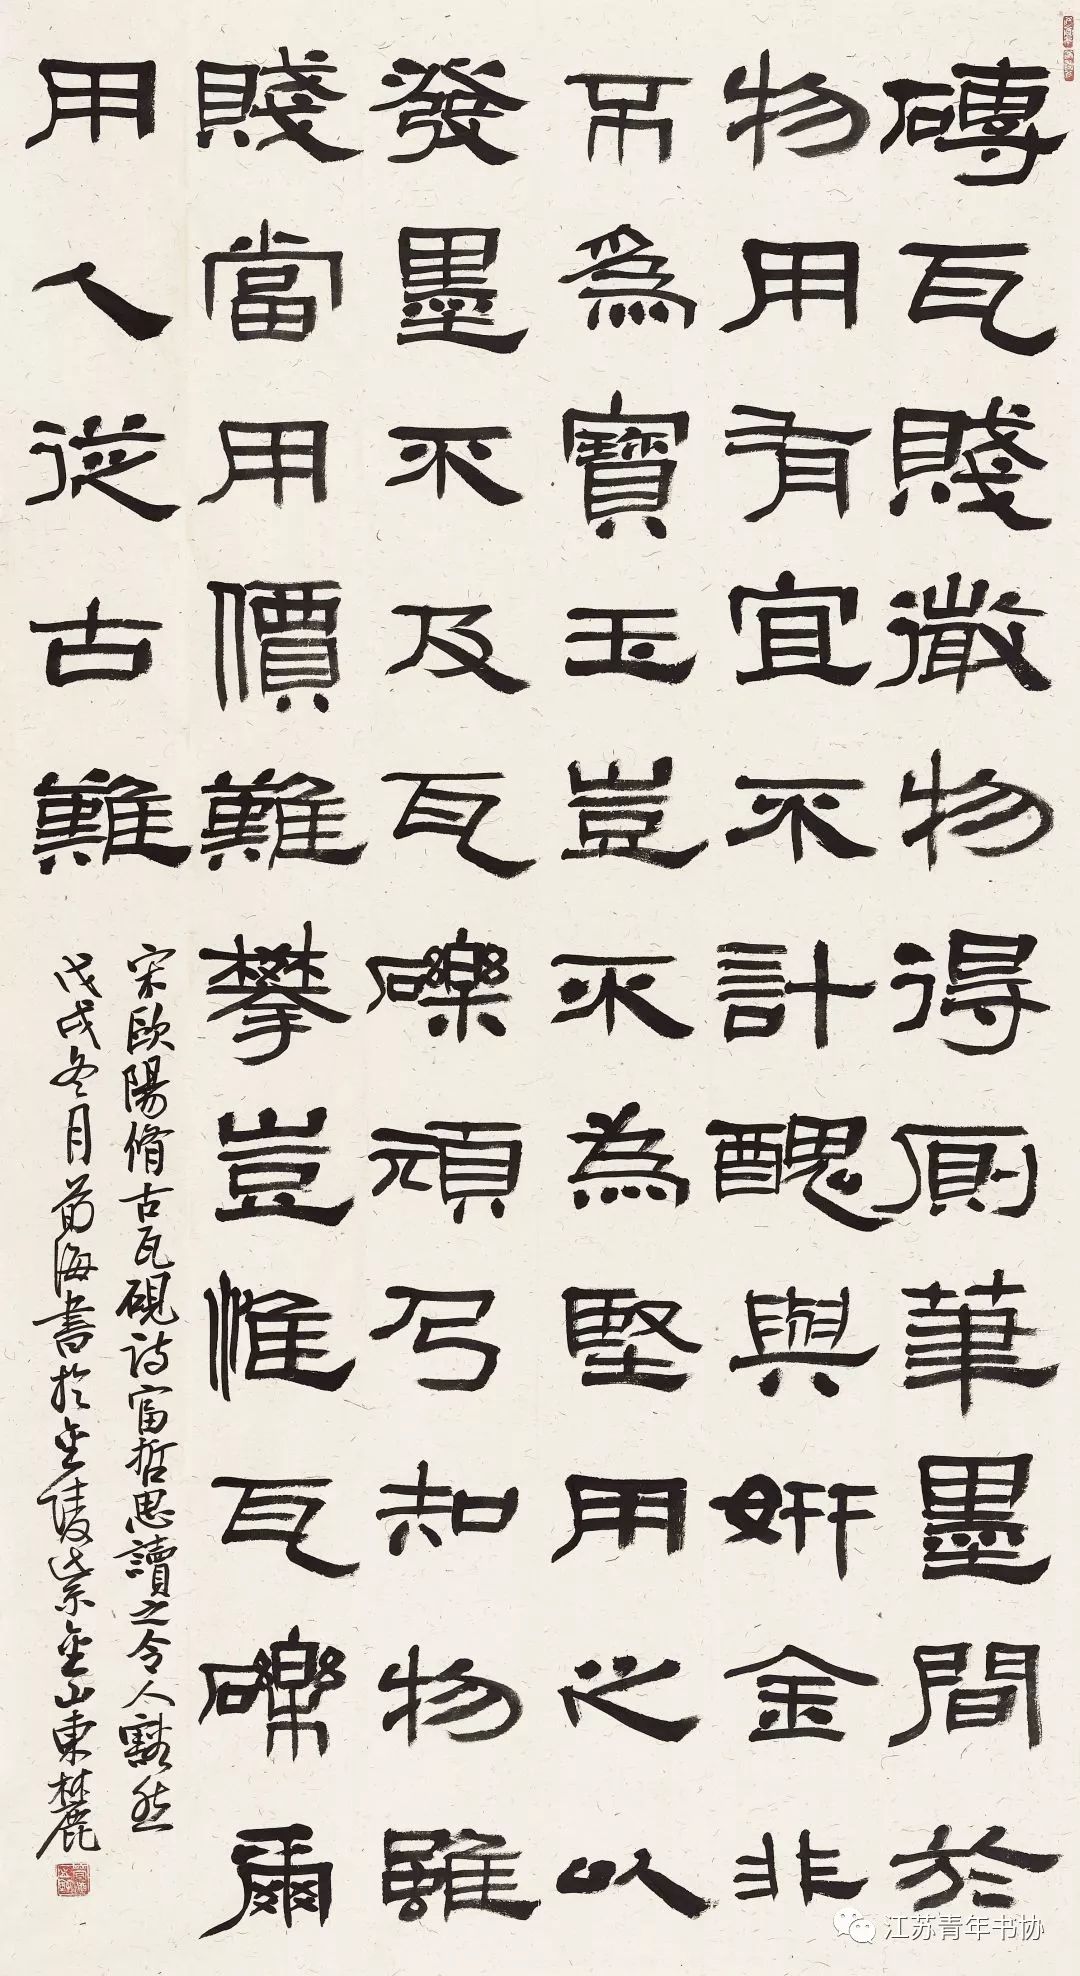 磚瓦賤微物得廁筆墨間於
物用有宜不計醜與妍金非
不爲寶玉豈不為堅用之以
發墨不及瓦礫頑乃知物雖
賤當用價難攀豈惟瓦礫爾
用人從古難
宋歐陽脩古瓦硯詩富哲思讀之令人豁然
戊戌冬月海書於金陵紫金山東麓
江苏青年书协